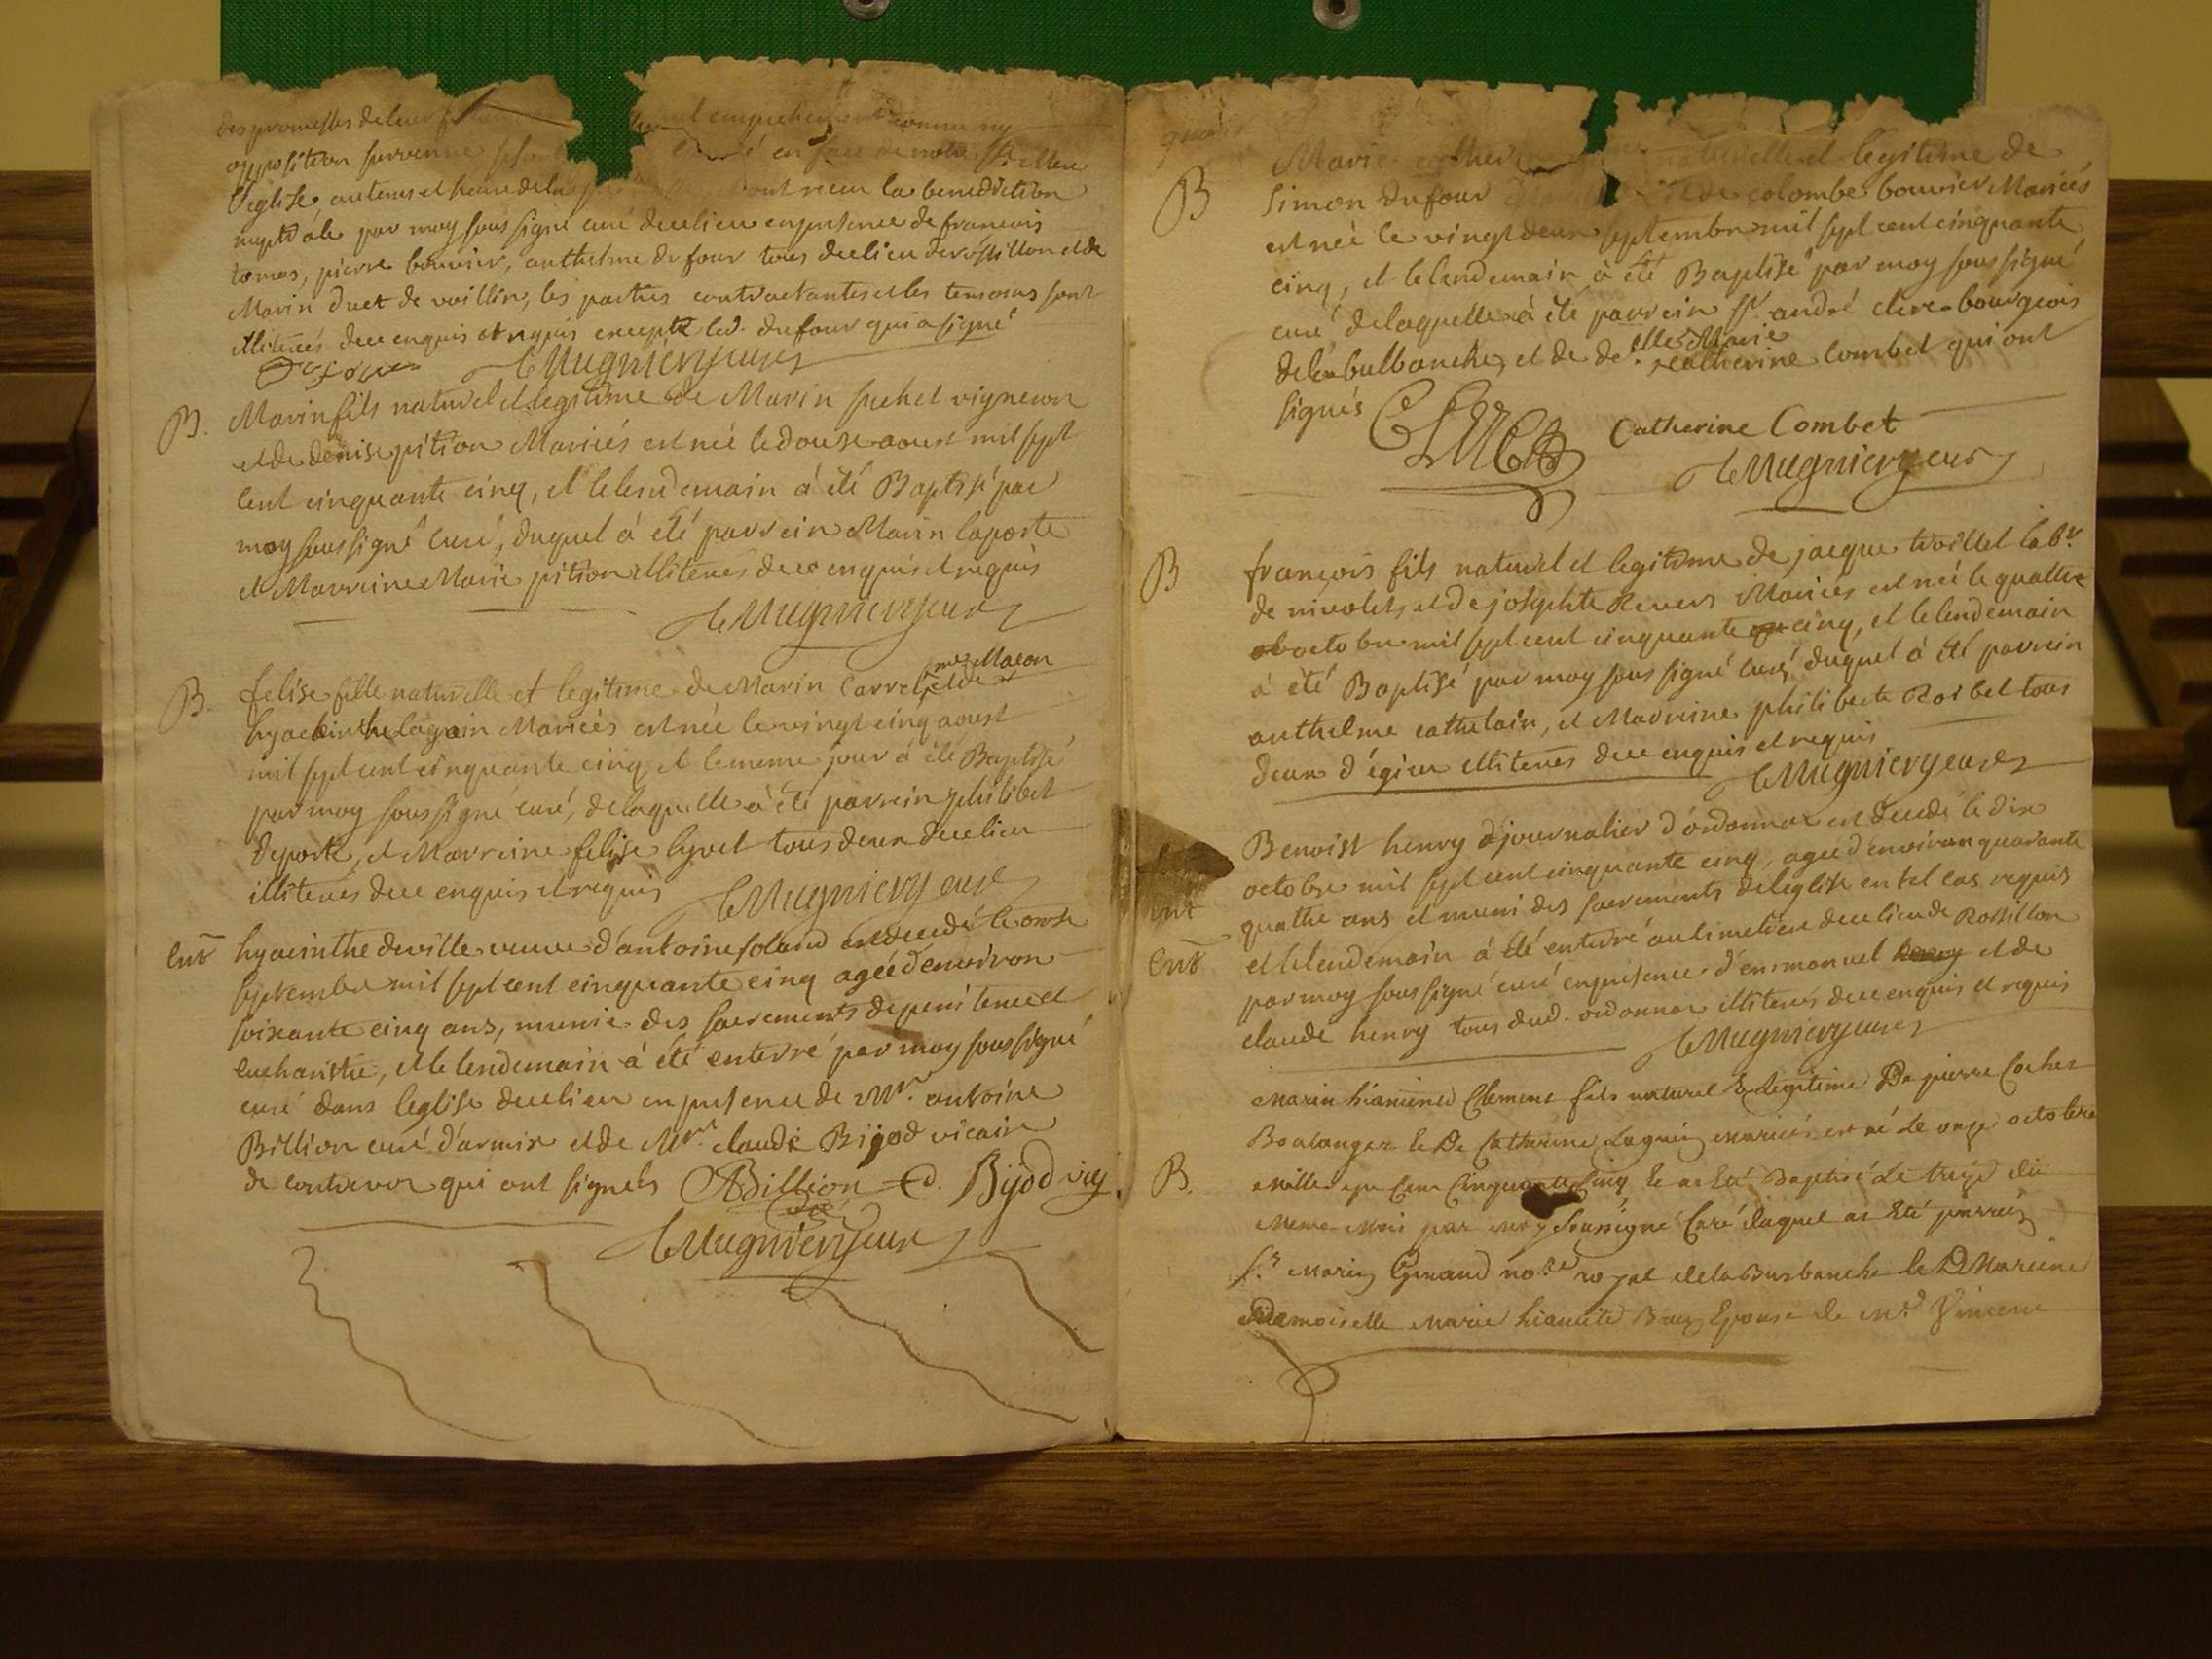 des promesses de leur empechement connu ny
opposition survenue en face de notre Ste. Mere
l'eglise, ont receu la benediction
nuptiâle par moy soussigné curé de ce lieu en presence de francois
tomas, pierre bouvier, anthelme du four tous de ce lieu de rossillon et de
Marin duet de voillin, les parties contractantes et les temoins sont
illiterés de ce enquis et requis excepté led. dufour qui a signé
Dufour leMugnier, curé
B. Marin fils naturel et legitime de Marin vigneron
et de denise pition Mariés est née le douse aoust mil sept
cent cinquante cinq, et le lendemain à été Baptisé par
moy soussigné curé, duquel à été parrein Marin laporte
et Marreine Marie pition illiterés de ce enquis et requis
leMugnier, curé
B. felise fille naturelle et legitime de Marin Carrel me. Macon et de
hyacinthe lagoin Mariés est née le vingt cinq aoust
mil sept cent cinquante cinq, et le meme jour à été Baptisé
par moy soussigné curé, de laquelle à été parrein philibert
deporte, et Marreine felise lyvet tous deux de ce lieu
illiterés de ce enquis et requis leMugnier, curé
ent hyacinthe deville veuve d'antoine foland est decedé le onse
septembre mil sept cent cinquante cinq agée d'environ
soixante cinq ans, munie des sacrements de penitence et
eucharistie, et le lendemain à été enterré par moy soussigné
curé dans l'eglise de ce lieu en presence de Mr. antoine
Billion curé d'armix et de Mr. claude Bijod vicaire
de contrevox qui ont signés ABillion C. Bijod vic
curé
leMugnier, curé
B Marie cather naturelle et legitime de
Simon dufour et de colombe bouvier Mariés
est née le vingt deux septembre mil sept cent cinquante
cinq, et le lendemain à été Baptisé par moy soussigné
curé, de laquelle à été parrein Sr. andré clerc bourgeois
de la bulbanche, et de delle. Marie catherine Combet qui ont
signés Clerc Catherine Combet
leMugnier, curé
B françois fils naturel et legitime de jacque troillet labr.
de nivolets, et de josephte Revers Mariés est née le quattre
octobre mil sept cent cinquante cinq, et le lendemain
à été Baptisé par moy soussigné curé, duquel à été parrein
anthelme cathelain, et Marreine philiberte Roibet tous
deux d'égieu illiterés de ce enquis et requis
leMugnier, curé
Benoist henry journalier d'ordonnax est decedé le dix
octobre mil sept cent cinquante cinq, ageé d'environ quarante
ent quattre ans et muni des sacrements de l'eglise en tel cas requis
ent et le lendemain à été enterré au cimetiere de ce lieu de Rossillon
par moy soussigné curé en presence d'enmanuel et de
claude henry tous dud. ordonnax illiterés de ce enquis et requis
leMugnier, curé
Marin Clement fils naturel & Legitime De pierre Cocher
Boulanger & De Catherine Mariés est né Le onze octobre
B. mille sept Cent Cinquante Cinq & as Eté Baptisé Le treize du
Meme Mois par Moy soussigné Curé duquel as Eté parrein
Sr. Marin nore. royal de la Burbanche & Marreine
Demoiselle Marie Epouse de Mr. Vincent